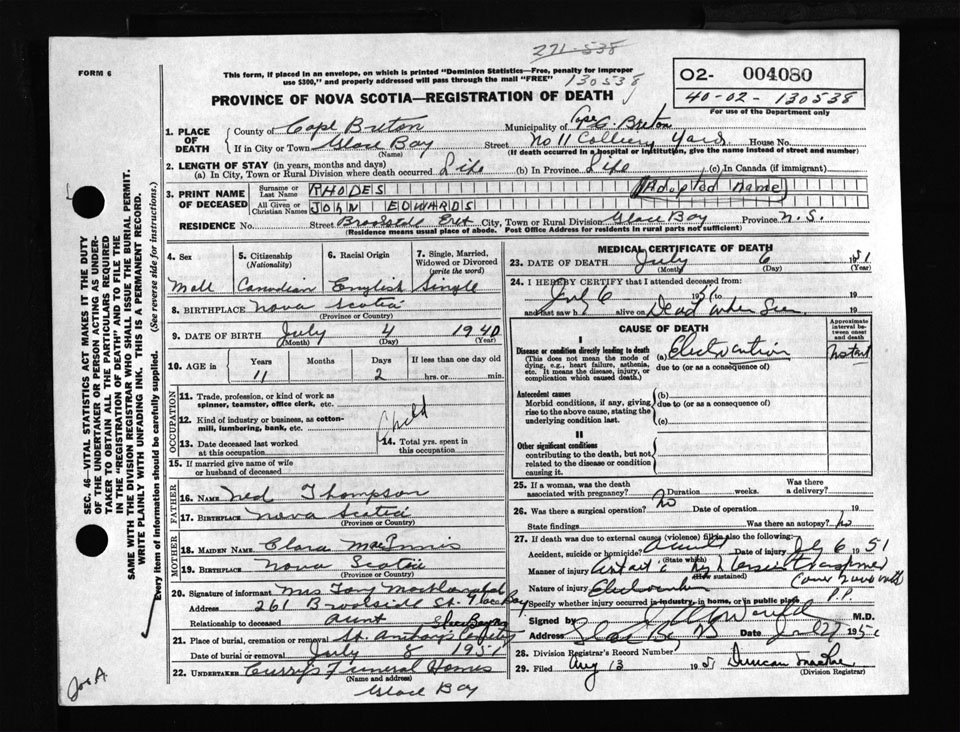 271-538
FORM 6
This form, if placed in an envelope, on which is printed "Dominion Statistics—Free, penalty for improper
use $300," and properly addressed will pass through the mail "FREE"
130538
02- 004080
40-02-130538
For use of the Department only
PROVINCE OF NOVA SCOTIA—REGISTRATION OF DEATH
1. PLACE OF DEATH
County of Cape Breton
Municipality of Cape Breton
If in City or Town Glace Bay (Name)
Street No 11 Colliery Yard House No.
(If death occurred in a hospital or institution, give the name instead of street and number)
2. LENGTH OF STAY (in years, months and days)
(a) In City, Town or Rural Division where death occurred Life (b) In Province Life (c) In Canada (if immigrant)
3. PRINT NAME OF DECEASED
Surname or Last Name RHODES (Adopted name)
All Given or Christian Names JOHN EDWARDS
RESIDENCE No. Street City, Town or Rural Division Glace Bay Province N.S.
(Residence means usual place of abode. Post Office Address for residents in rural parts not sufficient)
4. Sex
Male
5. Citizenship (Nationality)
Canadian
6. Racial Origin
English
7. Single, Married, Widowed or Divorced (write the word)
Single
8. BIRTHPLACE Nova Scotia
(Province or Country)
9. DATE OF BIRTH July 4 1940
(Month) (Day) (Year)
10. AGE in Years Months Days If less than one day old
11 2 hrs. or min.
OCCUPATION
11. Trade, profession, or kind of work as spinner, teamster, office clerk. etc.
12. Kind of industry or business, as cotton-mill, lumbering, bank, etc.
Child
13. Date deceased last worked at this occupation
14. Total yrs. spent in this occupation
15. If married give name of wife or husband of deceased
FATHER
16. NAME Ned Thompson
17. BIRTHPLACE Nova Scotia
(Province or Country)
MOTHER
18. MAIDEN NAME Clara MacInnis
19. BIRTHPLACE Nova Scotia
(Province or Country)
20. Signature of informant Mrs
Address 261 Brookside St. Glace Bay
Relationship to deceased aunt
21. Place of burial, cremation or removal St. Anthony's Cemetery
Date of burial or removal July 8 1951
22. UNDERTAKER Curry's Funeral Homes
(Name and address)
Glace Bay
MEDICAL CERTIFICATE OF DEATH
23. DATE OF DEATH July 6 1951
(Month) (Day) (Year)
24. I HEREBY CERTIFY that I attended deceased from:
Jul 6 1951 to 19
and last saw h alive on Dead when Seen 19
CAUSE OF DEATH
Approximate interval between onset and death
I
Disease or condition directly leading to death
(This does not mean the mode of dying, e.g., heart failure, asthenia, etc. It means the disease, injury, or complication which caused death.)
(a) Electrocution Instant
due to (or as a consequence of)
Antecedent causes
Morbid conditions, if any, giving rise to the above cause, stating the underlying condition last.
(b)
due to (or as a consequence of)
(c)
II
Other significant conditions
contributing to the death, but not related to the disease or condition causing it.
25. If a woman, was the death associated with pregnancy? Duration weeks. Was there a delivery?
26. Was there a surgical operation? no Date of operation 19
State findings Was there an autopsy? no
27. If death was due to external causes (violence) fill in also the following:
Accident, suicide or homicide? (State which) Date of injury July 6 1951
Manner of injury
(How sustained)
Nature of injury Electrocution
Specify whether injury occurred in industry, in home, or in public place P.P.
Signed by M.D.
Address Glace Bay Date
28. Division Registrar's Record Number
29. Filed Aug 13 1951 Duncan MacRae
(Division Registrar)
SEC. 46—VITAL STATISTICS ACT MAKES IT THE DUTY
OF THE UNDERTAKER OR PERSON ACTING AS UNDER-
TAKER TO OBTAIN ALL THE PARTICULARS REQUIRED
IN THE "REGISTRATION OF DEATH" AND TO FILE THE
SAME WITH THE DIVISION REGISTRAR WHO SHALL ISSUE THE BURIAL PERMIT.
WRITE PLAINLY WITH UNFADING INK. THIS IS A PERMANENT RECORD.
Every item of information should be carefully supplied. (See reverse side for instructions.)